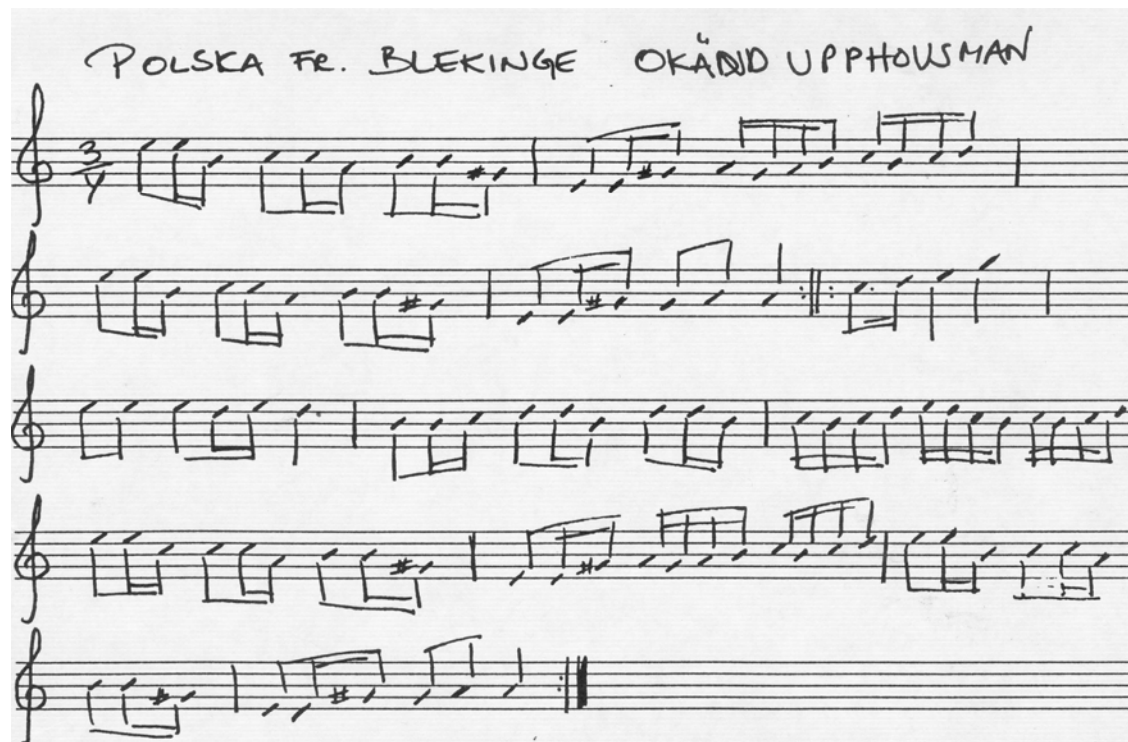 POLSKA FR. BLEKINGE OKÄND UPPHOVSMAN
3
4